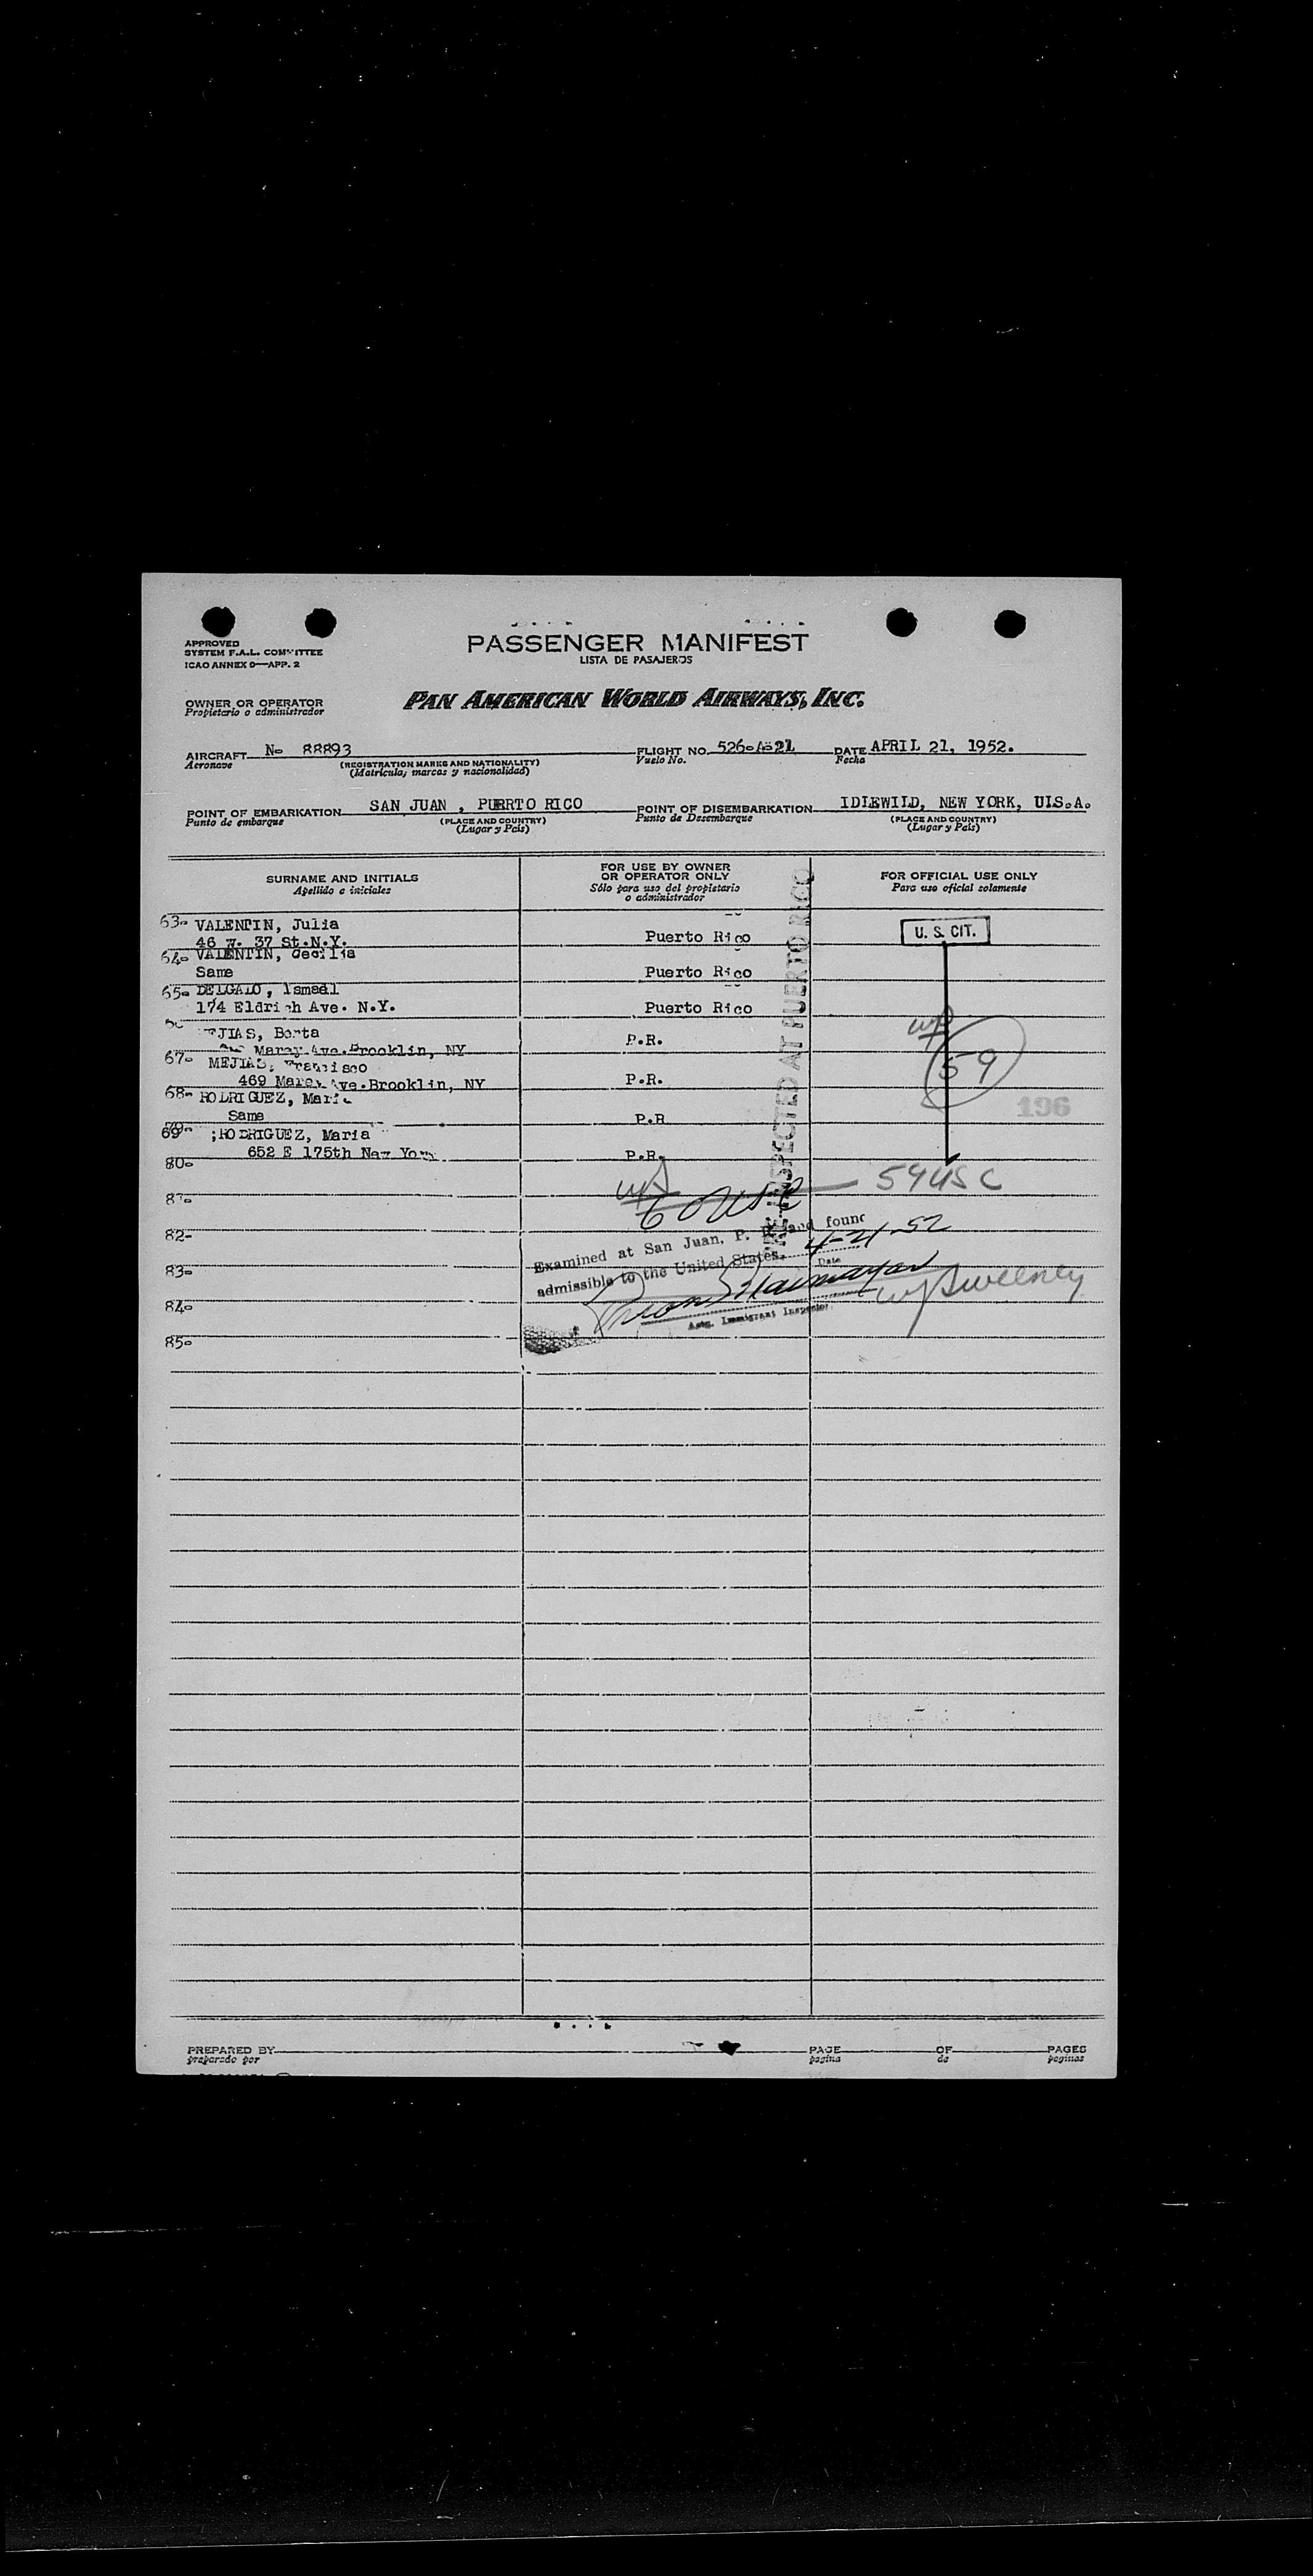 APPROVED
SYSTEM F.A.L. COMMITTEE
ICAO ANNEX 9—APP. 2
PASSENGER MANIFEST
LISTA DE PASAJEROS
OWNER OR OPERATOR
Propietario o administrador
PAN AMERICAN WORLD AIRWAYS, INC.
AIRCRAFT No 88893 FLIGHT NO. DATE APRIL 21, 1952.
Aeronave (REGISTRATION MARKS AND NATIONALITY) Vuelo No. Fecha
(Matricula, marcas y nacionalidad)
POINT OF EMBARKATION SAN JUAN , PUERTO RICO POINT OF DISEMBARKATION IDLEWILD, NEW YORK, UIS.A.
Punto de embarque (PLACE AND COUNTRY) Punto de Desembarque (PLACE AND COUNTRY)
(Lugar y Pais) (Lugar y Pais)
SURNAME AND INITIALS FOR USE BY OWNER OR OPERATOR ONLY FOR OFFICIAL USE ONLY
Apellido e iniciales Sólo para uso del propietario o administrador Para uso oficial solamente
63- VALENTIN, Julia
46 W. 37 St.N.Y. Puerto Rico U. S. CIT.
64- VALENTIN, Cecilia
Same Puerto Rico
65- DELGADO, Ismael
174 Eldrich Ave. N.Y. Puerto Rico
MEJIAS, Berta P.R.
Marcy Ave.Brooklin, NY
67- MEJIAS, Francisco
469 Marcy Ave.Brooklin, NY P.R. 59
68- RODRIGUEZ, Maria
Same P.R 196
69- ;RODRIGUEZ, Maria
652 E 175th New York P.R.
80-
PRE-INSPECTED AT PUERTO RICO
59 USC
60 USC
82-
Examined at San Juan, P. R. and found
admissible to the United States. 4-21-52
Date
83-
84- Sweeney
Asst. Immigrant Inspector
85-
PREPARED BY PAGE OF PAGES
preparado por pagina de paginas